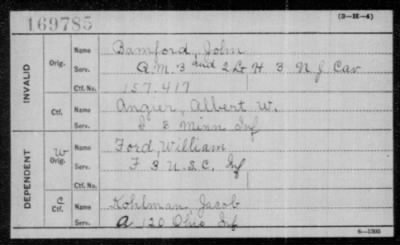 169785
(3-H-4)
INVALID
Orig.
Name
Bamford, John
Serv.
Q.M. 3 and 2 Lt H 3 N J Cav
Ctf. No.
157.417
Ctf.
Name
Angier, Albert W.
Serv.
8 Minn Inf
DEPENDENT
W
Orig.
Name
Ford, William
Serv.
F 3 U.S.C. Inf
Ctf. No.
C
Ctf.
Name
Kohlman, Jacob
Serv.
A 120 Ohio Inf